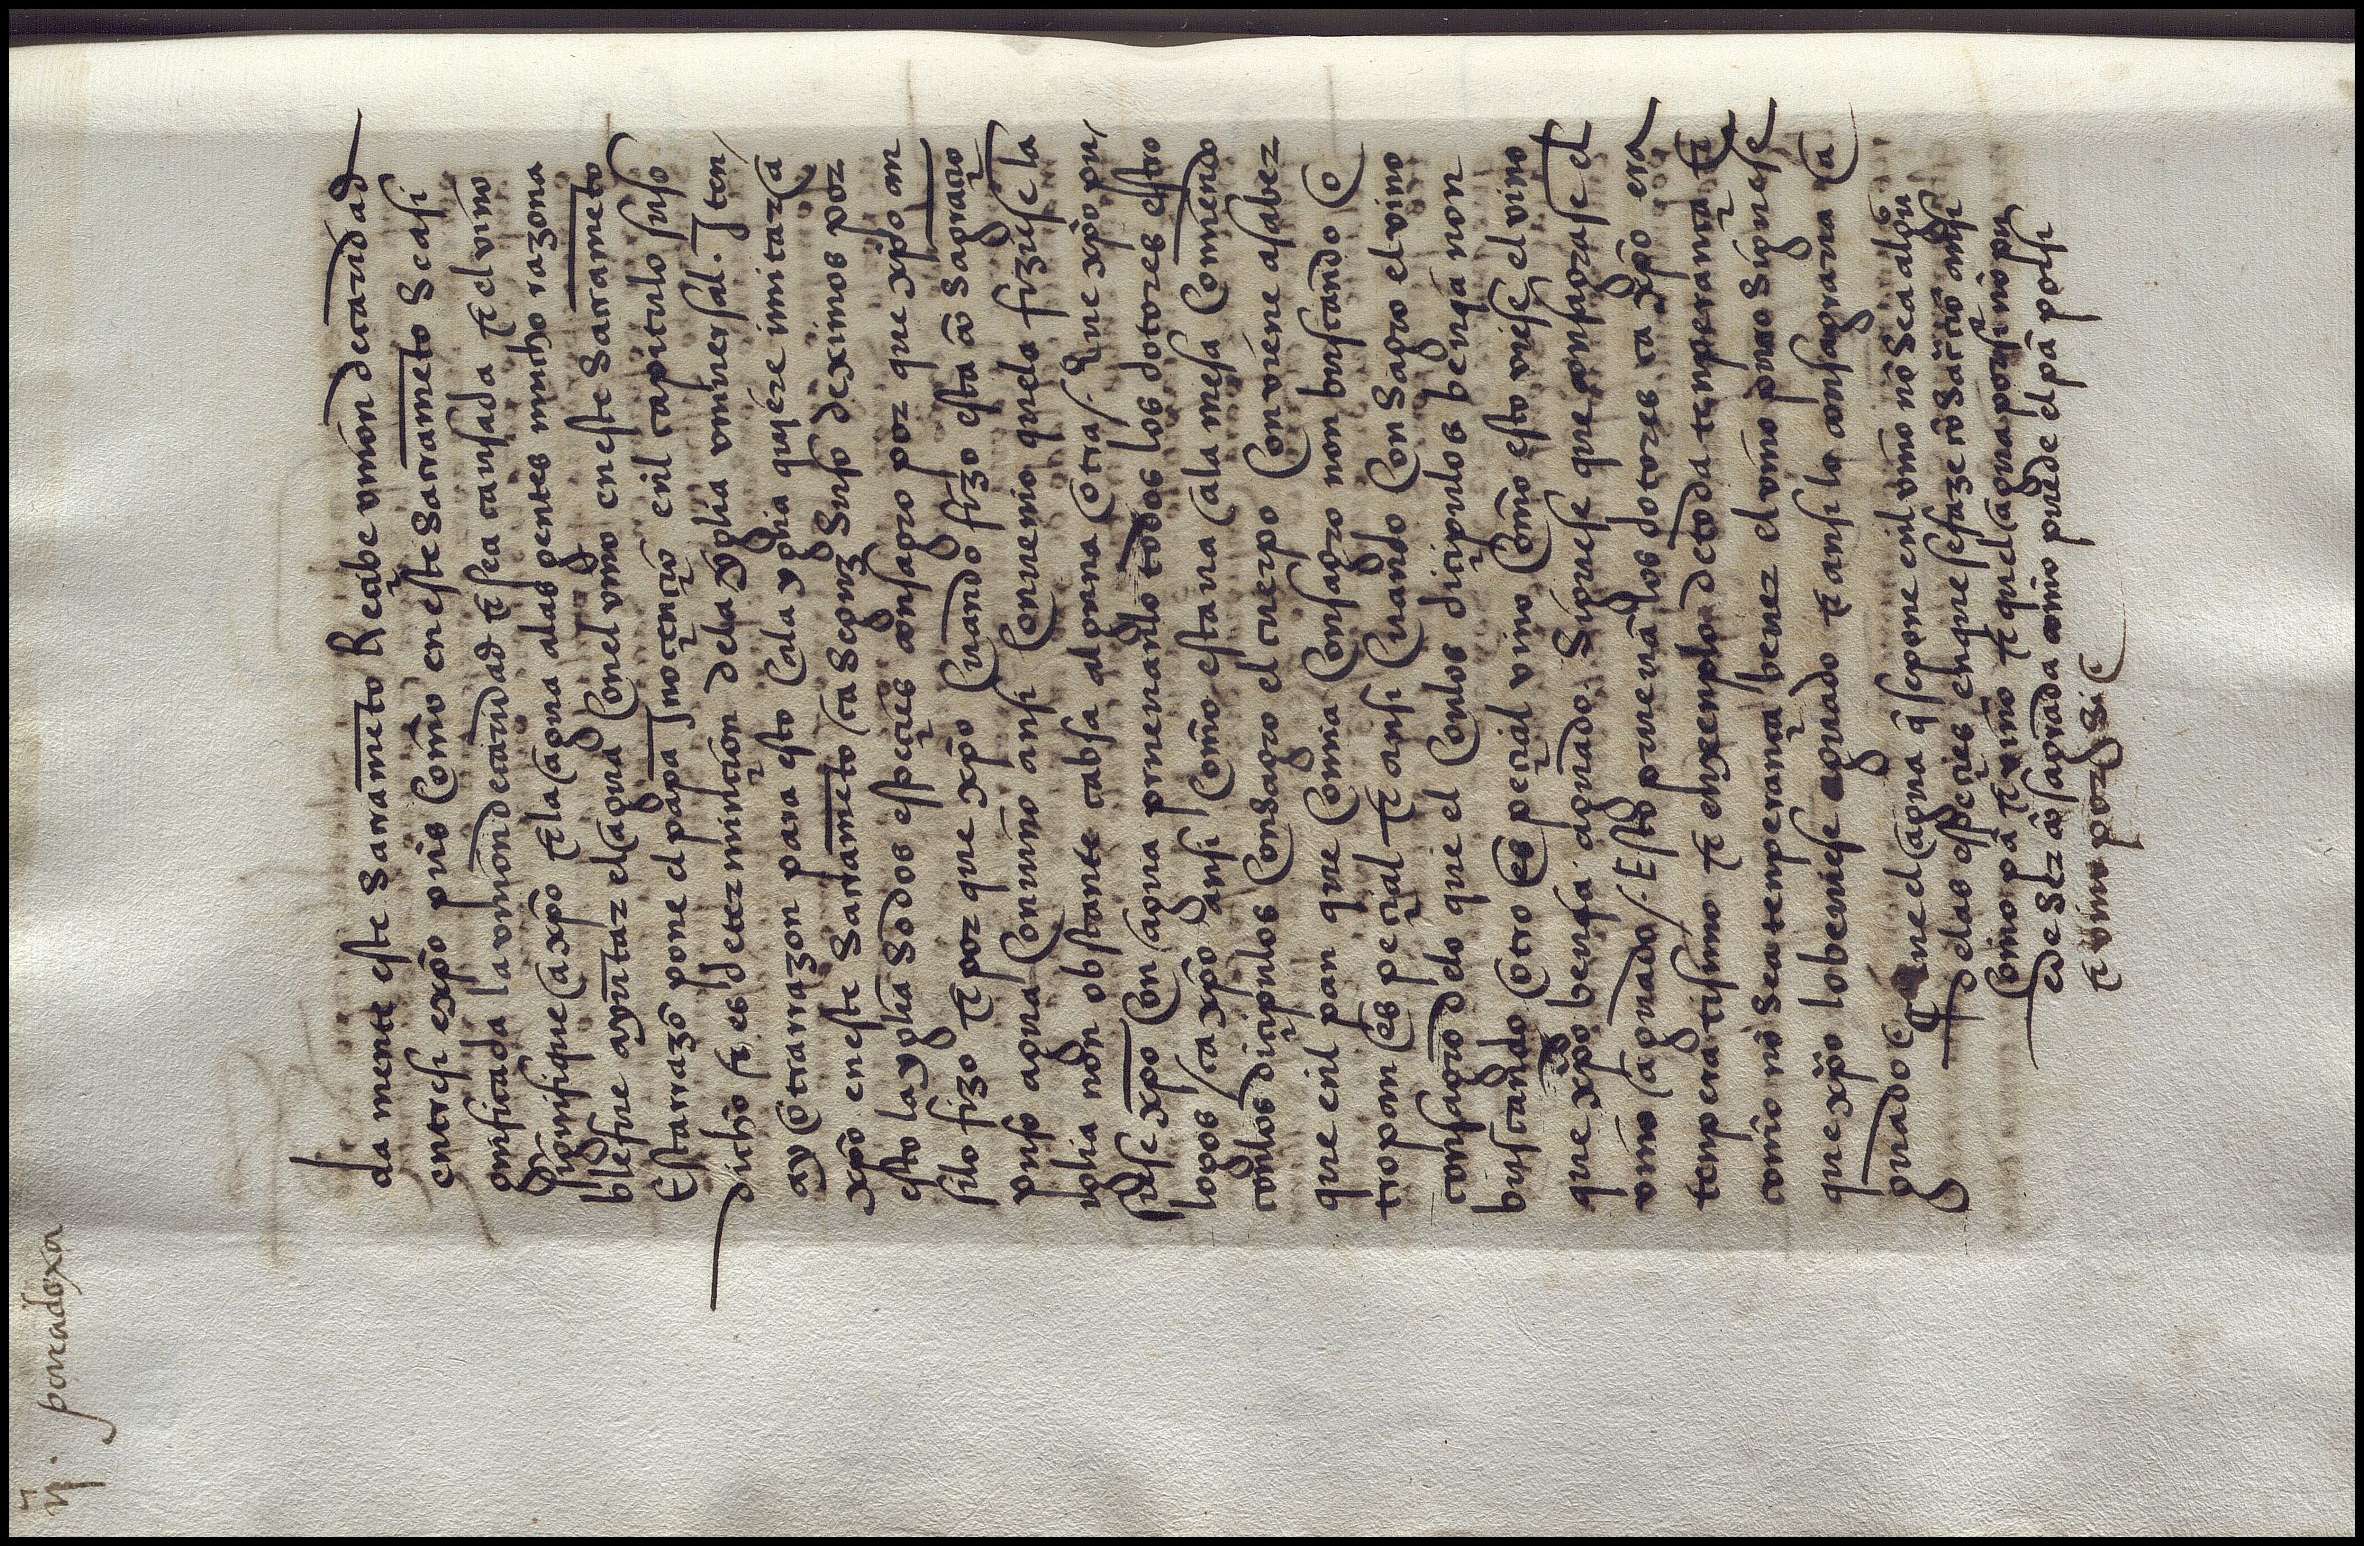 ij. paradoxa
da mente este sacrameto Recibe union de caridad
entresi e xpo pues Como en este sacrameto sea si
gnificada la union de caridad τ sea causada τ el vino
signifique a xpo τ la agua alas gentes mucho razona
blefue ayuntar el agua Con el vino en este sacrameto
Esta razo pone el papa Jnocencio en el capitulo suso
dicho si es determinacion dela yglia universal. Iten
ay otra razon para esto Ca la yglia quiere imitar a
xpo en este sacrameto ca segund suso deximos por
esto la yglia so dos especies consagro por que xpo an
si lo fizo τ por que xpo Cuando fizo esta co sagracio
puso agua Con vino ansi Convenio quela fiziese la
yglia non obstante cabsa alguna otra. Que xpo pu
siese xpo Con agua pruevanlo todos los dotores esto
logos ca xpo ansi Como estava a la mesa Comiendo
con los dicipulos Consagro el cuerpo Conviene asaber
que en el pan que Comia Consagro non buscando o
tro pan especial τ ansi Cuando Consagro el vino
consagro delo que el Con los dicipulos bevia non
buscando otro especial vino Como esto oviese el vino
que xpo bevia aguado Siguese que consagrase el
vino aguado. Esto prueva los dotores ca xpo era
temperatisimo τ enxenplo de toda temperancia τ
como no sea temperancia bever el vino puro siguese
que xpo lo beviese aguado τ ansi lo consagrava a
guado
Que el agua q se pone en el vino no sea algu
delas especies en que se faze este sacrio ansi
Como pa τ vino τ que el agua por si no pu
ede ser co sagrada como puede el pa por si
τ vino por si